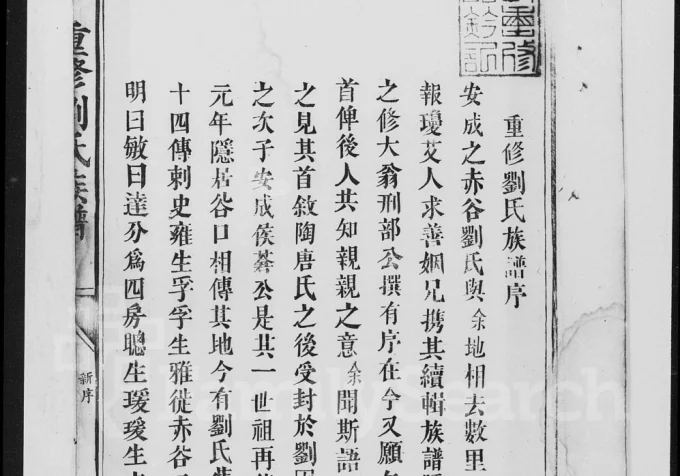 重修劉氏族譜序
安成之赤谷劉氏與余地相去數里
報瓊艾人求善姻兄携其續輯族譜
之修大翁刑部公撰有序在今又願
首俾後人共知親親之意余聞斯語
之見其首敘陶唐氏之後受封於劉
之次子安成侯蒼公是共一世祖再
元年隱居谷口相傳其地今有劉氏
十四傳刺史雍生孚孚生雅徙赤谷
明曰敏曰達分爲四房聰生瑗瑗生
重修劉氏族譜
新序
FamilySearch